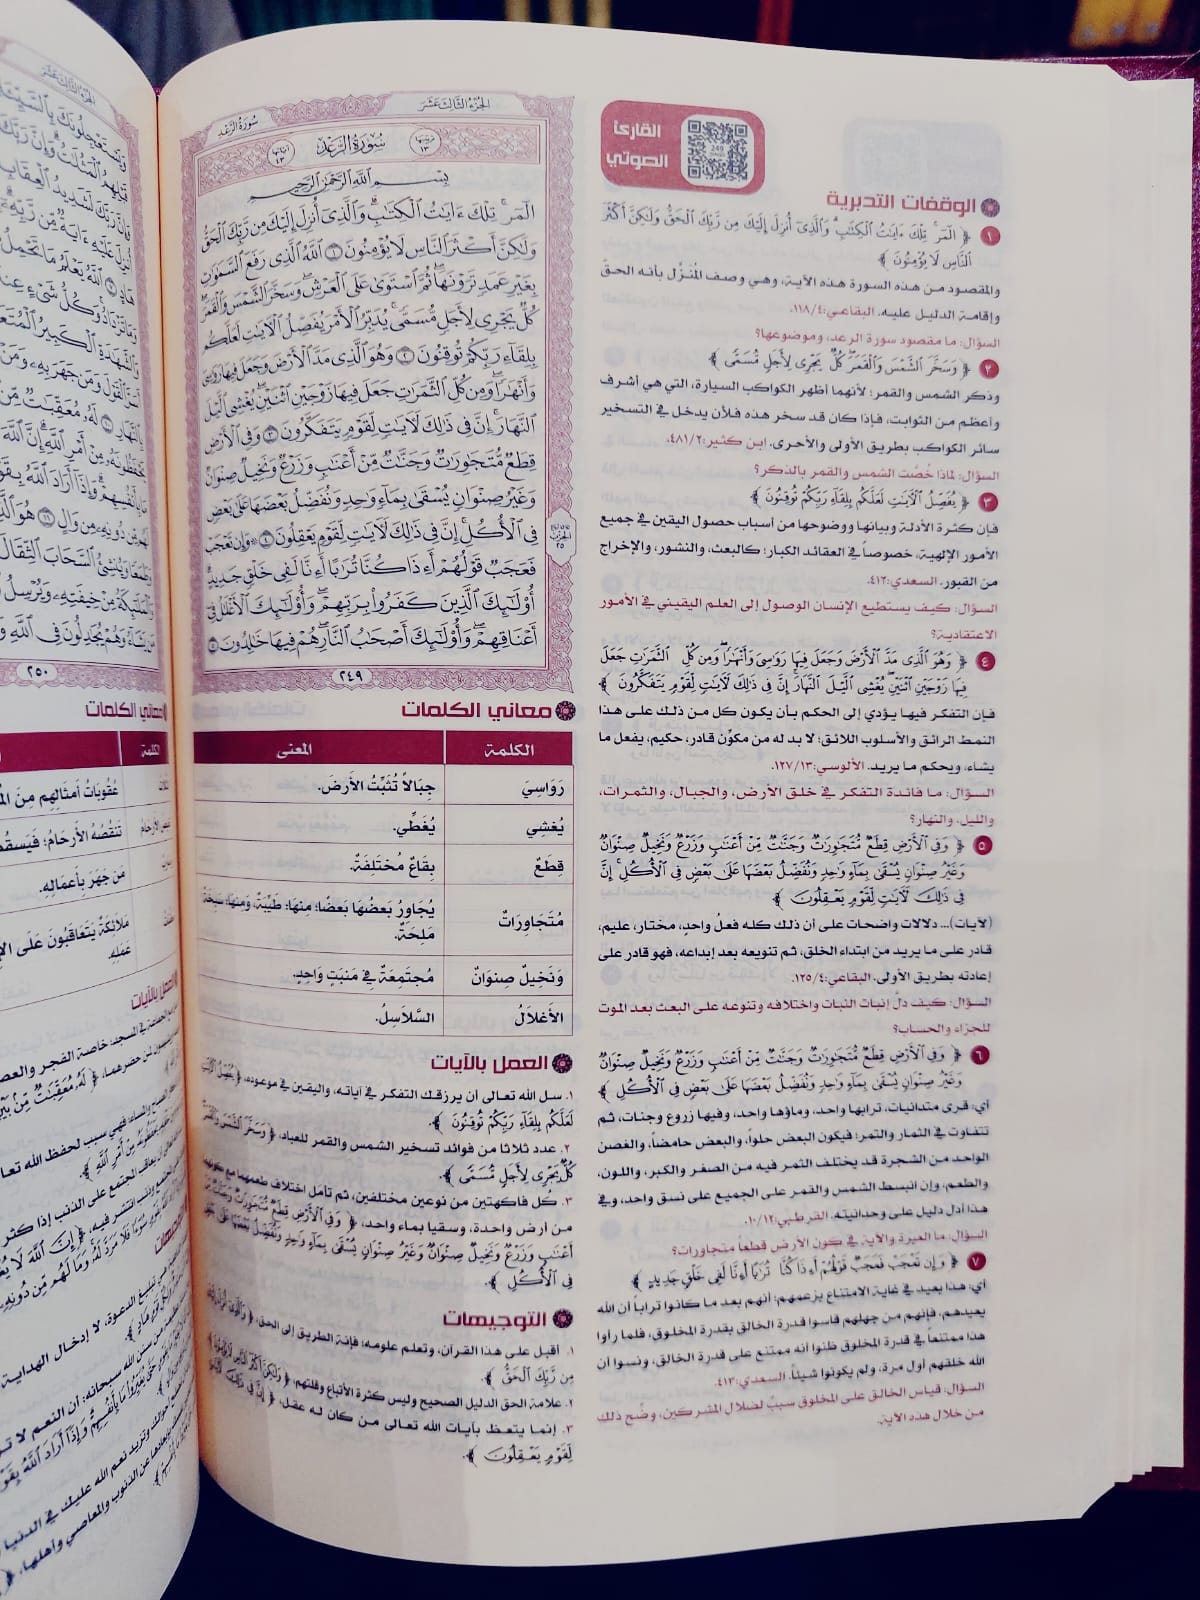 القارئ
الصوتي
249
الوقفات التدبرية
١ ﴿ الٓمٓر ۚ تِلْكَ ءَايَٰتُ ٱلْكِتَٰبِ ۗ وَٱلَّذِىٓ أُنزِلَ إِلَيْكَ مِن رَّبِّكَ ٱلْحَقُّ وَلَٰكِنَّ أَكْثَرَ
ٱلنَّاسِ لَا يُؤْمِنُونَ ﴾
والمقصود من هذه السورة هذه الآية، وهي وصف المُنْزَّل بأنه الحقّ
وإقامة الدليل عليه. البقاعي:٤/ ١١٨.
السؤال: ما مقصود سورة الرعد، وموضوعها؟
٢ ﴿ وَسَخَّرَ ٱلشَّمْسَ وَٱلْقَمَرَ ۖ كُلٌّ يَجْرِى لِأَجَلٍ مُّسَمًّى ﴾
وذكر الشمس والقمر؛ لأنهما أظهر الكواكب السيارة، التي هي أشرف
وأعظم من الثوابت، فإذا كان قد سخر هذه فلأن يدخل في التسخير
سائر الكواكب بطريق الأولى والأحرى. ابن كثير:٢/ ٤٨١.
السؤال: لماذا خُصَّت الشمس والقمر بالذكر؟
٣ ﴿ يُفَصِّلُ ٱلْءَايَٰتِ لَعَلَّكُم بِلِقَآءِ رَبِّكُمْ تُوقِنُونَ ﴾
فإن كثرة الأدلة وبيانها ووضوحها من أسباب حصول اليقين في جميع
الأمور الإلهية، خصوصاً في العقائد الكبار؛ كالبعث، والنشور، والإخراج
من القبور. السعدي:٤١٢.
السؤال: كيف يستطيع الإنسان الوصول إلى العلم اليقيني في الأمور
الاعتقادية؟
٤ ﴿ وَهُوَ ٱلَّذِى مَدَّ ٱلْأَرْضَ وَجَعَلَ فِيهَا رَوَٰسِىَ وَأَنْهَٰرًا ۖ وَمِن كُلِّ ٱلثَّمَرَٰتِ جَعَلَ
فِيهَا زَوْجَيْنِ ٱثْنَيْنِ ۖ يُغْشِى ٱلَّيْلَ ٱلنَّهَارَ ۚ إِنَّ فِى ذَٰلِكَ لَءَايَٰتٍ لِّقَوْمٍ يَتَفَكَّرُونَ ﴾
فإن التفكر فيها يؤدي إلى الحكم بأن يكون كل من ذلك على هذا
النمط الرائق والأسلوب اللائق؛ لا بد له من مكوِّن قادر، حكيم، يفعل ما
يشاء، ويحكم ما يريد. الألوسي:١٣/ ١٢٧.
السؤال: ما فائدة التفكر في خلق الأرض، والجبال، والثمرات،
والليل، والنهار؟
٥ ﴿ وَفِى ٱلْأَرْضِ قِطَعٌ مُّتَجَٰوِرَٰتٌ وَجَنَّٰتٌ مِّنْ أَعْنَٰبٍ وَزَرْعٌ وَنَخِيلٌ صِنْوَانٌ
وَغَيْرُ صِنْوَانٍ يُسْقَىٰ بِمَآءٍ وَٰحِدٍ وَنُفَضِّلُ بَعْضَهَا عَلَىٰ بَعْضٍ فِى ٱلْأُكُلِ ۚ إِنَّ
فِى ذَٰلِكَ لَءَايَٰتٍ لِّقَوْمٍ يَعْقِلُونَ ﴾
(لآيات)... دلالات واضحات على أن ذلك كله فعلُ واحدٍ، مختار، عليم،
قادر على ما يريد من ابتداء الخلق، ثم تنويعه بعد إبداعه، فهو قادر على
إعادته بطريق الأولى. البقاعي:٤/ ١٢٥.
السؤال: كيف دلَّ إنبات النبات واختلافه وتنوعه على البعث بعد الموت
للجزاء والحساب؟
٦ ﴿ وَفِى ٱلْأَرْضِ قِطَعٌ مُّتَجَٰوِرَٰتٌ وَجَنَّٰتٌ مِّنْ أَعْنَٰبٍ وَزَرْعٌ وَنَخِيلٌ صِنْوَانٌ
وَغَيْرُ صِنْوَانٍ يُسْقَىٰ بِمَآءٍ وَٰحِدٍ وَنُفَضِّلُ بَعْضَهَا عَلَىٰ بَعْضٍ فِى ٱلْأُكُلِ ﴾
أي: قرى متدانيات، ترابها واحد، وماؤها واحد، وفيها زروع وجنات، ثم
تتفاوت في الثمار والتمر؛ فيكون البعض حلواً، والبعض حامضاً، والغصن
الواحد من الشجرة قد يختلف الثمر فيه من الصغر والكبر، واللون،
والطعم، وإن انبسط الشمس والقمر على الجميع على نسق واحد، وفي
هذا أدل دليل على وحدانيته. القرطبي:١٢/ ١٠.
السؤال: ما العبرة والآية في كون الأرض قطعاً متجاورات؟
٧ ﴿ وَإِن تَعْجَبْ فَعَجَبٌ قَوْلُهُمْ أَءِذَا كُنَّا تُرَٰبًا أَءِنَّا لَفِى خَلْقٍ جَدِيدٍ ﴾
أي: هذا بعيد في غاية الامتناع بزعمهم؛ أنهم بعد ما كانوا تراباً أن الله
يعيدهم، فإنهم من جهلهم قاسوا قدرة الخالق بقدرة المخلوق، فلما رأوا
هذا ممتنعاً في قدرة المخلوق ظنوا أنه ممتنع على قدرة الخالق، ونسوا أن
الله خلقهم أول مرة، ولم يكونوا شيئاً. السعدي:٤١٣.
السؤال: قياس الخالق على المخلوق سببٌ لضلال المشركين، وضّح ذلك
من خلال هذه الآية.
الجُزءُ الثَّالِثَ عَشَرَ
سُورَةُ الرَّعْدِ
ترتيبها ١٣
سُورَةُ الرَّعْدِ
آياتها ٤٣
بِسْمِ ٱللَّهِ ٱلرَّحْمَٰنِ ٱلرَّحِيمِ
الٓمٓر ۚ تِلْكَ ءَايَٰتُ ٱلْكِتَٰبِ ۗ وَٱلَّذِىٓ أُنزِلَ إِلَيْكَ مِن رَّبِّكَ ٱلْحَقُّ
وَلَٰكِنَّ أَكْثَرَ ٱلنَّاسِ لَا يُؤْمِنُونَ ١ ٱللَّهُ ٱلَّذِى رَفَعَ ٱلسَّمَٰوَٰتِ
بِغَيْرِ عَمَدٍ تَرَوْنَهَا ۖ ثُمَّ ٱسْتَوَىٰ عَلَى ٱلْعَرْشِ ۖ وَسَخَّرَ ٱلشَّمْسَ وَٱلْقَمَرَ ۖ
كُلٌّ يَجْرِى لِأَجَلٍ مُّسَمًّى ۚ يُدَبِّرُ ٱلْأَمْرَ يُفَصِّلُ ٱلْءَايَٰتِ لَعَلَّكُم
بِلِقَآءِ رَبِّكُمْ تُوقِنُونَ ٢ وَهُوَ ٱلَّذِى مَدَّ ٱلْأَرْضَ وَجَعَلَ فِيهَا رَوَٰسِىَ
وَأَنْهَٰرًا ۖ وَمِن كُلِّ ٱلثَّمَرَٰتِ جَعَلَ فِيهَا زَوْجَيْنِ ٱثْنَيْنِ ۖ يُغْشِى ٱلَّيْلَ
ٱلنَّهَارَ ۚ إِنَّ فِى ذَٰلِكَ لَءَايَٰتٍ لِّقَوْمٍ يَتَفَكَّرُونَ ٣ وَفِى ٱلْأَرْضِ
قِطَعٌ مُّتَجَٰوِرَٰتٌ وَجَنَّٰتٌ مِّنْ أَعْنَٰبٍ وَزَرْعٌ وَنَخِيلٌ صِنْوَانٌ
وَغَيْرُ صِنْوَانٍ يُسْقَىٰ بِمَآءٍ وَٰحِدٍ وَنُفَضِّلُ بَعْضَهَا عَلَىٰ بَعْضٍ
فِى ٱلْأُكُلِ ۚ إِنَّ فِى ذَٰلِكَ لَءَايَٰتٍ لِّقَوْمٍ يَعْقِلُونَ ٤ وَإِن تَعْجَبْ
فَعَجَبٌ قَوْلُهُمْ أَءِذَا كُنَّا تُرَٰبًا أَءِنَّا لَفِى خَلْقٍ جَدِيدٍ ۗ
أُو۟لَٰٓئِكَ ٱلَّذِينَ كَفَرُوا۟ بِرَبِّهِمْ ۖ وَأُو۟لَٰٓئِكَ ٱلْأَغْلَٰلُ فِىٓ
أَعْنَاقِهِمْ ۖ وَأُو۟لَٰٓئِكَ أَصْحَٰبُ ٱلنَّارِ ۖ هُمْ فِيهَا خَٰلِدُونَ ٥
٢٤٩
معاني الكلمات
الكلمة المعنى
رَوَاسِيَ جِبَالاً تُثَبِّتُ الأَرضَ.
يُغشِي يُغَطِّي.
قِطَعٌ بِقَاعٌ مُختَلِفَةٌ.
مُتَجَاوِرَاتٌ يُجَاوِرُ بَعضُهَا بَعضًا؛ مِنهَا: طَيِّبَةٌ، وَمِنهَا: سَبِخَةٌ
مَلِحَةٌ.
وَنَخِيلٌ صِنوَانٌ مُجتَمِعَةٌ فِي مَنبَتٍ وَاحِدٍ.
الأَغلَالُ السَّلَاسِلُ.
العمل بالآيات
١. سل الله تعالى أن يرزقك التفكر في آياته، واليقين في موعوده، ﴿ يُفَصِّلُ ٱلْءَايَٰتِ
لَعَلَّكُم بِلِقَآءِ رَبِّكُمْ تُوقِنُونَ ﴾.
٢. عدد ثلاثا من فوائد تسخير الشمس والقمر للعباد، ﴿ وَسَخَّرَ ٱلشَّمْسَ وَٱلْقَمَرَ
كُلٌّ يَجْرِى لِأَجَلٍ مُّسَمًّى ﴾.
٣. كُل فاكهتين من نوعين مختلفين، ثم تأمل اختلاف طعمهما مع كونهما
من أرض واحدة، وسقيا بماء واحد، ﴿ وَفِى ٱلْأَرْضِ قِطَعٌ مُّتَجَٰوِرَٰتٌ وَجَنَّٰتٌ مِّنْ
أَعْنَٰبٍ وَزَرْعٌ وَنَخِيلٌ صِنْوَانٌ وَغَيْرُ صِنْوَانٍ يُسْقَىٰ بِمَآءٍ وَٰحِدٍ وَنُفَضِّلُ بَعْضَهَا عَلَىٰ بَعْضٍ
فِى ٱلْأُكُلِ ﴾.
التوجيهات
١. أقبل على هذا القرآن، وتعلم علومه؛ فإنه الطريق إلى الحق، ﴿ وَٱلَّذِىٓ أُنزِلَ إِلَيْكَ
مِن رَّبِّكَ ٱلْحَقُّ ﴾.
٢. علامة الحق الدليل الصحيح وليس كثرة الأتباع وقلتهم، ﴿ وَلَٰكِنَّ أَكْثَرَ ٱلنَّاسِ لَا يُؤْمِنُونَ ﴾.
٣. إنما يتعظ بآيات الله تعالى من كان له عقل، ﴿ إِنَّ فِى ذَٰلِكَ لَءَايَٰتٍ
لِّقَوْمٍ يَعْقِلُونَ ﴾.
الجُزءُ الثَّالِثَ عَشَرَ
٢٥٠
معاني الكلمات
الكلمة
عُقُوبَاتُ أَمثَالِهِم مِنَ
تَنقُصُهُ الأَرحَامُ؛
مَن جَهَرَ بِأَعمَالِهِ.
مَلَائِكَةٌ يَتَعَاقَبُونَ عَلَى
عَمَلِهِ.
العمل بالآيات